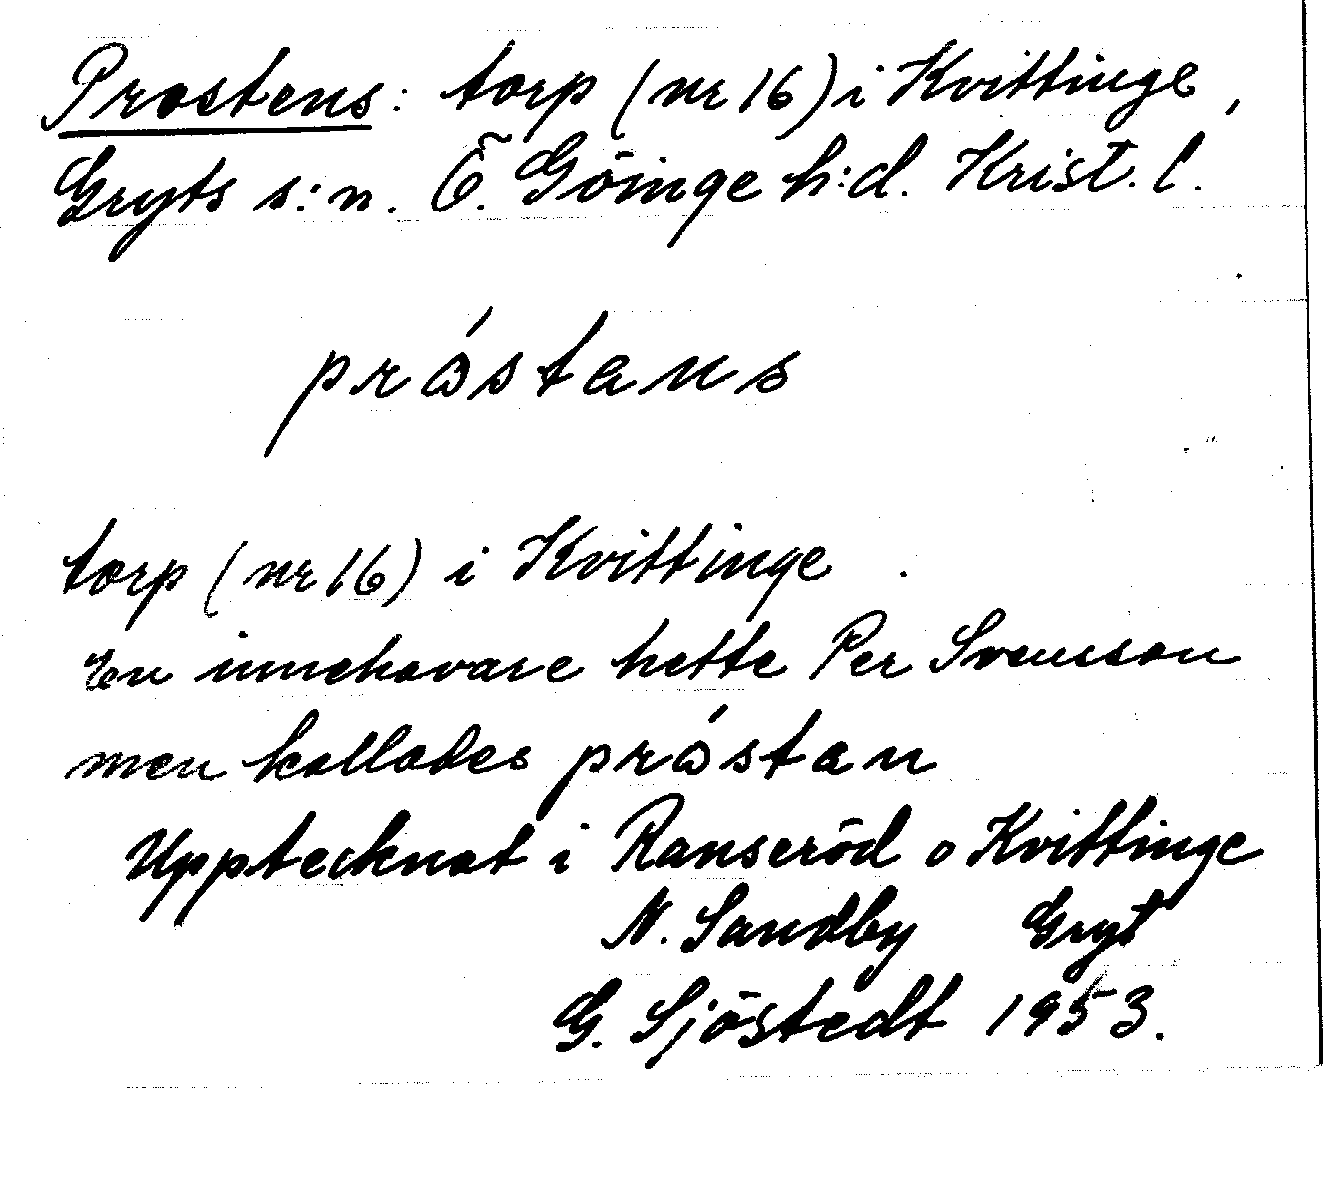 Prostens: torp (nr 16) i Kvittinge,
Gryts s:n. Ö. Göinge h:d. Krist. l.
pråstans
torp (nr 16) i Kvittinge.
En innehavare hette Per Svensson
men kallades pråstan
Upptecknat i Ranseröd o Kvittinge
N. Sandby Gryt
G. Sjöstedt 1953.